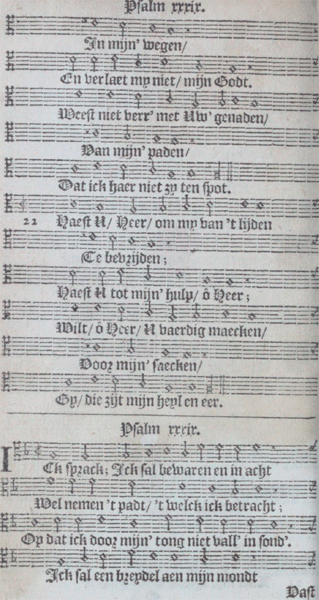 Psalm xxxix.
In mijn' wegen/
En verlaet my niet/ mijn Godt.
Weest niet verr' met Uw' genaden/
Van mijn' paden/
Dat ick haer niet zy ten spot.
22 Haest U/ Heer/ om my van 't lijden
Te bevrijden;
Haest U tot mijn' hulp/ ô Heer;
Wilt/ ô Heer/ U vaerdig maecken/
Door mijn' saecken/
Gy/ die zijt mijn heyl en eer.
Psalm xxxix.
ICk sprack; Ick sal bewaren en in acht
Wel nemen 't padt/ 't welck ick betracht;
Op dat ick door mijn' tong niet vall' in sond'.
Ick sal een breydel aen mijn mondt
Vast